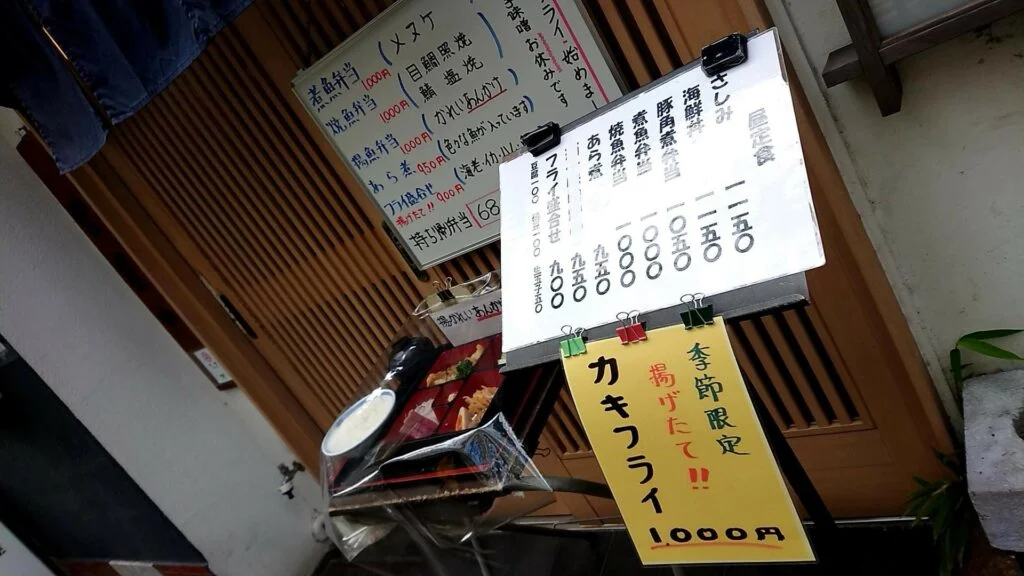 煮魚弁当 1000円 (メヌケ
焼魚弁当 1000円 (目鯛照焼 鯖塩焼)
揚魚弁当 1000円 (かれいあんかけ
あら煮 950円 (色々な魚が入っています)
フライ盛合せ 揚げたて!! 900円 (海老・イカ
持ち帰り弁当 68
お休みです
昼定食
さしみ 一一五〇
海鮮丼 一一五〇
豚角煮弁当 一〇五〇
煮魚弁当 一〇〇〇
焼魚弁当 一〇〇〇
あら煮 九五〇
九五〇
フライ盛合せ 九〇〇
揚かれいあんか
季節限定
揚げたて!!
カキフライ
1.000円